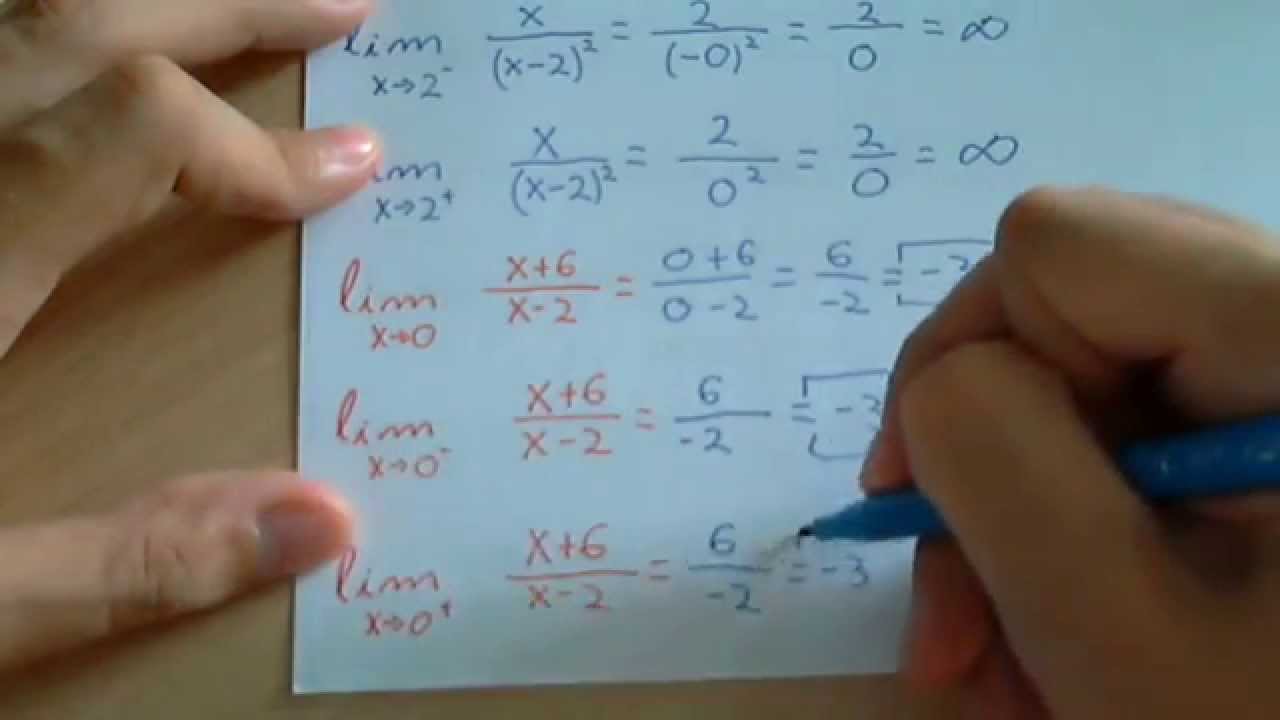 lim x→2⁻ x/(x-2)² = 2/(-0)² = 2/0 = ∞
x→2⁺ x/(x-2)² = 2/0² = 2/0 = ∞
lim x→0 x+6/x-2 = 0+6/0-2 = 6/-2 =
lim x→0⁻ x+6/x-2 = 6/-2 = -3
lim x→0⁺ x+6/x-2 = 6/-2 = -3